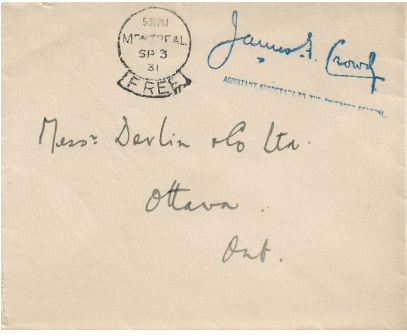 530PM
MONTREAL
SP 3
31
FREE
James F. Crowdy
ASSISTANT SECRETARY TO THE GOVERNOR GENERAL.
Messrs Devlin & Co Ltd.
Ottawa.
Ont.